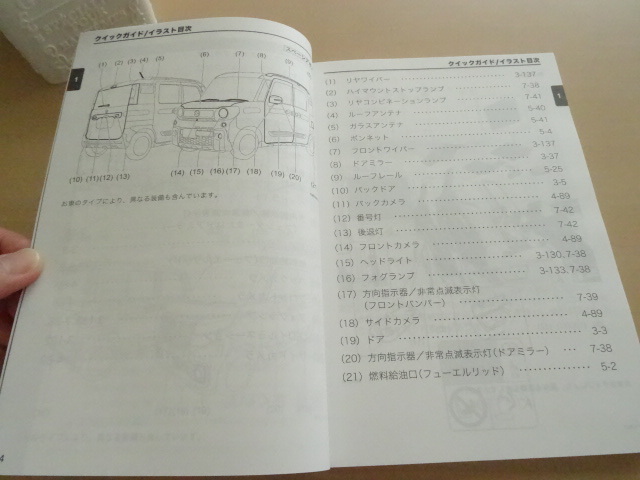 クイックガイド/イラスト目次
1
(1) (2) (3) (4) (5) (6) (7) (8) (9)
(10) (11) (12) (13) (14) (15) (16) (17) (18) (19) (20)
お車のタイプにより、異なる装備も含んでいます。
4
クイックガイド/イラスト目次
1
(1) リヤワイパー 3-137
(2) ハイマウントストップランプ 7-38
(3) リヤコンビネーションランプ 7-41
(4) ルーフアンテナ 5-40
(5) ガラスアンテナ 5-41
(6) ボンネット 5-4
(7) フロントワイパー 3-137
(8) ドアミラー 3-37
(9) ルーフレール 5-25
(10) バックドア 3-5
(11) バックカメラ 4-89
(12) 番号灯 7-42
(13) 後退灯 7-42
(14) フロントカメラ 4-89
(15) ヘッドライト 3-130、7-38
(16) フォグランプ 3-133、7-38
(17) 方向指示器/非常点滅表示灯
(フロントバンパー) 7-39
(18) サイドカメラ 4-89
(19) ドア 3-3
(20) 方向指示器/非常点滅表示灯(ドアミラー) 7-38
(21) 燃料給油口(フューエルリッド) 5-2